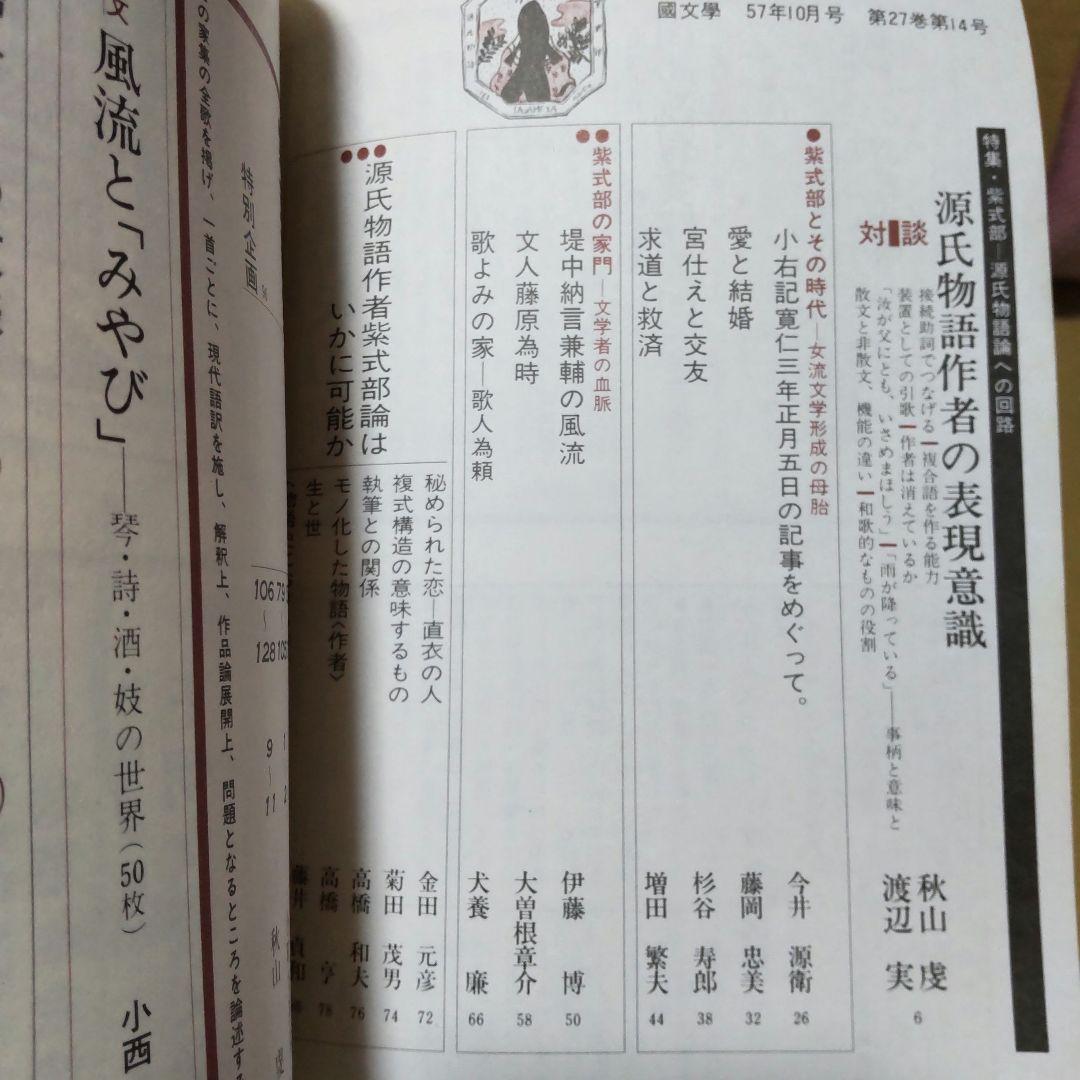 國文學 57年10月号 第27巻第14号
特集・紫式部―源氏物語論への回路
源氏物語作者の表現意識
対談
接続助詞でつなげる―複合語を作る能力
装置としての引歌―作者は消えているか
「汝が父にとも、いさめまほしう」―「雨が降っている」――事柄と意味と
散文と非散文、機能の違い―和歌的なものの役割
秋山 虔
渡辺 実
6
●紫式部とその時代―女流文学形成の母胎
小右記寛仁三年正月五日の記事をめぐって。 今井 源衛 26
愛と結婚 藤岡 忠美 32
宮仕えと交友 杉谷 寿郎 38
求道と救済 増田 繁夫 44
●●紫式部の家門―文学者の血脈
堤中納言兼輔の風流 伊藤 博 50
文人藤原為時 大曽根章介 58
歌よみの家―歌人為頼 犬養 廉 66
●●●源氏物語作者紫式部論は
いかに可能か
秘められた恋―直衣の人 金田 元彦 72
複式構造の意味するもの 菊田 茂男 74
執筆との関係 高橋 和夫 76
モノ化した物語〈作者〉 高橋 亨 78
生と世 藤井 貞和
特別企画
の家集の全歌を掲げ、一首ごとに、現代語訳を施し、解釈上、作品論展開上、問題となるところを論述す
106〜128
9〜11
秋山 虔
風流と「みやび」――琴・詩・酒・妓の世界(50枚) 小西